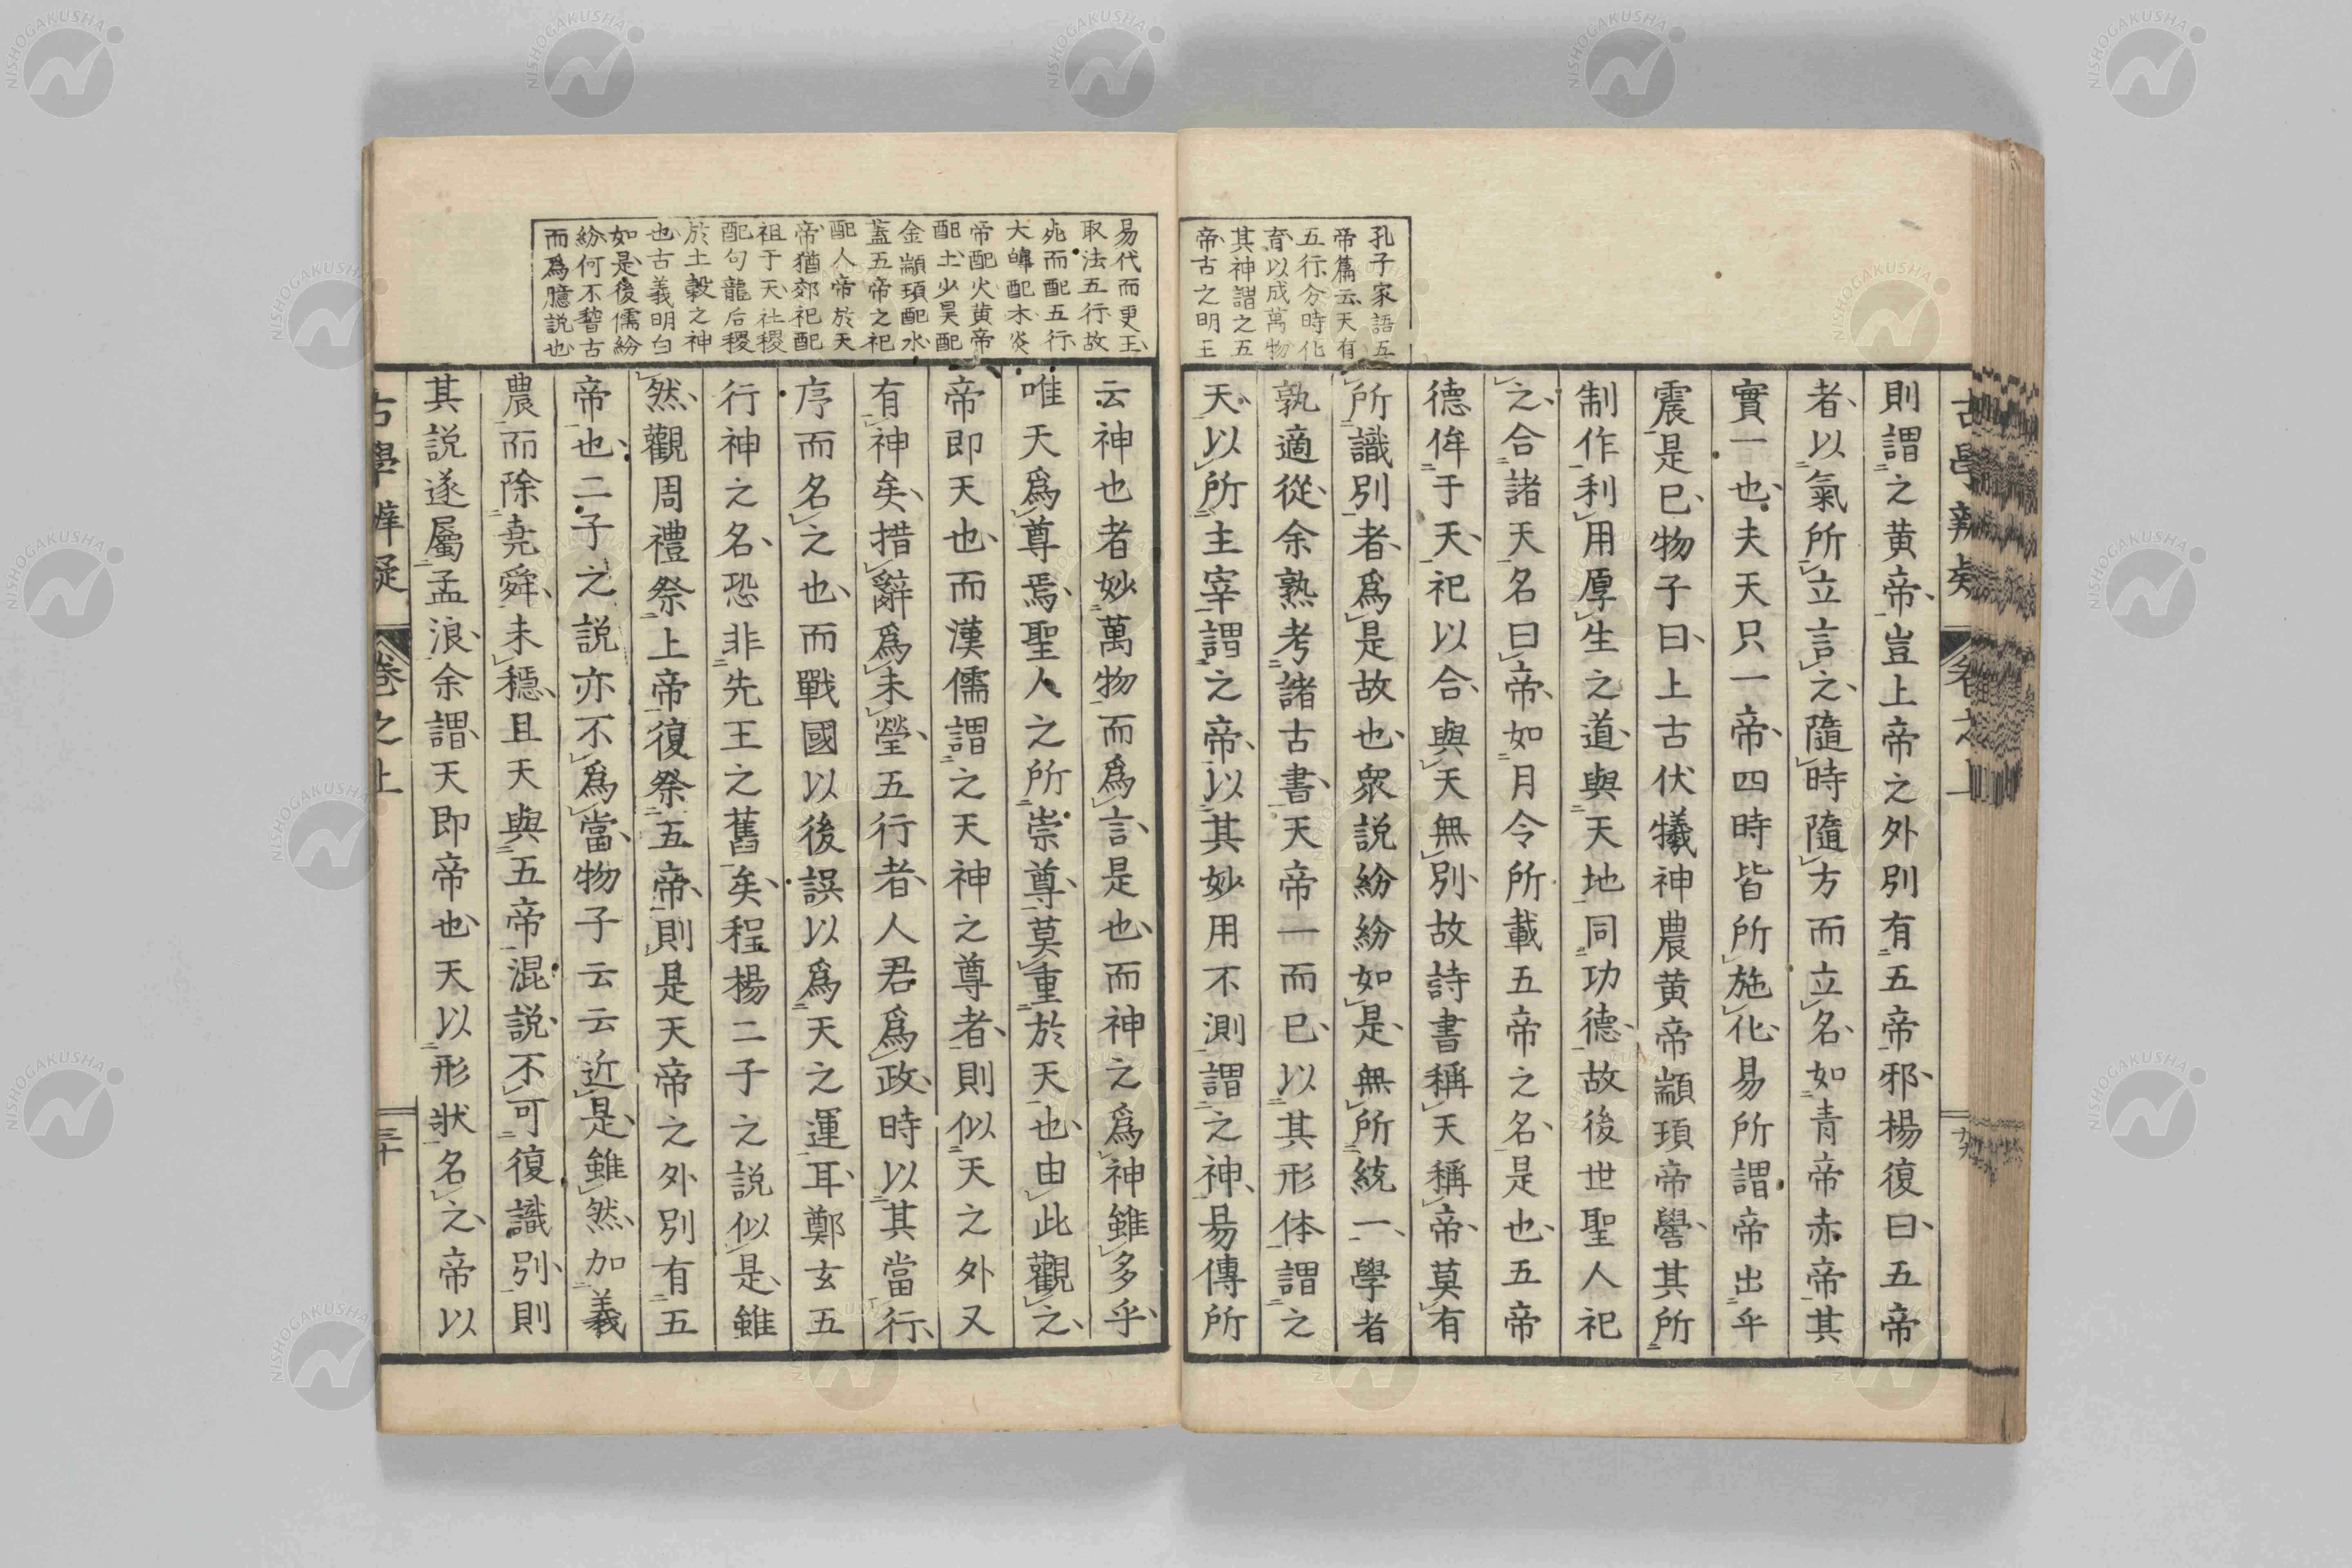 孔子家語五
帝篇云天有
五行分時化
育以成萬物
其神謂之五
帝古之明王
則謂之黄帝豈上帝之外別有五帝邪楊復曰五帝
者以氣所立言之隨時隨方而立名如青帝赤帝其
實一也夫天只一帝四時皆所施化易所謂帝出乎
震是已物子曰上古伏犧神農黄帝顓頊帝嚳其所
制作利用厚生之道與天地同功德故後世聖人祀
之合諸天名曰帝如月令所載五帝之名是也五帝
德侔于天祀以合與天無別故詩書稱天稱帝莫有
所識別者爲是故也衆説紛紛如是無所統一學者
孰適從余熟考諸古書天帝一而已以其形体謂之
天以所主宰謂之帝以其妙用不測謂之神易傳所
易代而更王
取法五行故
死而配五行
大皡配木炎
帝配火黄帝
配土少昊配
金顓頊配水
蓋五帝之祀
配人帝於天
帝猶郊祀配
祖于天社稷
配句龍后稷
於土穀之神
也古義明白
如是後儒紛
紛何不嵆古
而爲臆説也
云神也者妙萬物而爲言是也而神之爲神雖多乎
唯天爲尊焉聖人之所崇尊莫重於天也由此觀之
帝即天也而漢儒謂之天神之尊者則似天之外又
有神矣措辭爲未瑩五行者人君爲政時以其當行
序而名之也而戰國以後誤以爲天之運耳鄭玄五
行神之名恐非先王之舊矣程楊二子之説似是雖
然觀周禮祭上帝復祭五帝則是天帝之外別有五
帝也二子之説亦不爲當物子云云近是雖然加義
農而除堯舜未穩且天與五帝混説不可復識別則
其説遂屬孟浪余謂天即帝也天以形狀名之帝以
古學辨疑 卷之上 三十